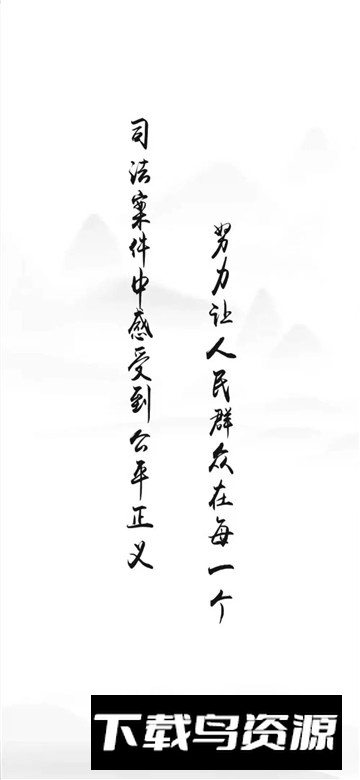 努力让人民群众在每一个
司法案件中感受到公平正义
下载鸟资源